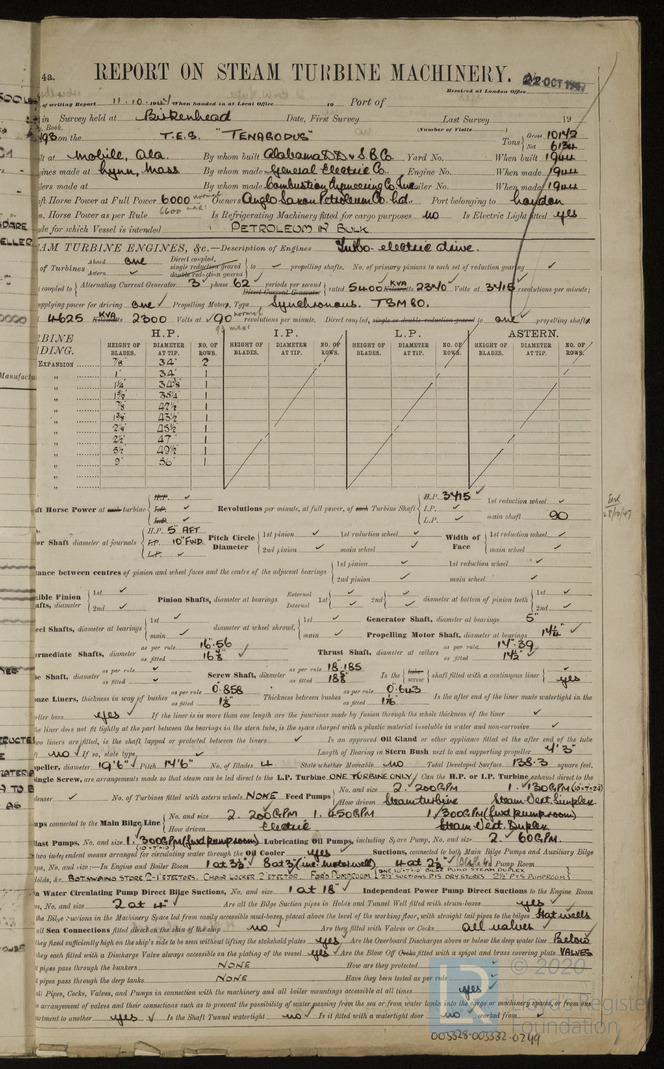 4a.
REPORT ON STEAM TURBINE MACHINERY.
22 OCT 1947
Received at London Office
of writing Report 11.10.1947 When handed in at Local Office 19 Port of
in Survey held at Birkenhead Date, First Survey Last Survey 19
Book. (Number of Visits )
on the T.E.S. "TENAGODUS" Tons Gross 10172 Net 6134
lt at Mobile, Ala. By whom built Alabama D.D. & S.B. Co. Yard No. When built 1944
gines made at Lynn, Mass By whom made General Electric Co. Engine No. When made 1944
lers made at By whom made Combustion Engineering Co. Inc. Boiler No. When made 1944
ft Horse Power at Full Power 6000 normal Owners Anglo Saxon Petroleum Co. Ltd. Port belonging to London
m. Horse Power as per Rule 6600 max Is Refrigerating Machinery fitted for cargo purposes no Is Electric Light fitted yes
ade for which Vessel is intended PETROLEUM IN BULK
EAM TURBINE ENGINES, &c.—Description of Engines Turbo-electric drive.
of Turbines Ahead one Direct coupled, single reduction geared to propelling shafts. No. of primary pinions to each set of reduction gearing
Astern double reduction geared
coupled to Alternating Current Generator 3 phase 62 periods per second rated 5400 KVA 2340 Volts at 3715 revolutions per minute;
Direct Current Generator
supplying power for driving one Propelling Motors, Type Synchronous. TSM 80.
4625 KVA 2300 Volts at 90 normal revolutions per minute. Direct coupled, single or double reduction geared to one propelling shafts
RBINE H.P. I.P. L.P. ASTERN.
DING. HEIGHT OF BLADES. DIAMETER AT TIP. NO. OF ROWS. HEIGHT OF BLADES. DIAMETER AT TIP. NO. OF ROWS. HEIGHT OF BLADES. DIAMETER AT TIP. NO. OF ROWS. HEIGHT OF BLADES. DIAMETER AT TIP. NO. OF ROWS.
EXPANSION 7/8 34" 2
" 1" 34" 1
" 1
" 1
" 1
" 1
" 1
" 47" 1
" 1
" 9" 56" 1
ft Horse Power at each turbine H.P. I.P. L.P. Revolutions per minute, at full power, of each Turbine Shaft H.P. 3715 I.P. L.P. 1st reduction wheel main shaft 90
or Shaft diameter at journals H.P. 5" AFT I.P. 10" FWD. L.P. Pitch Circle Diameter 1st pinion 2nd pinion 1st reduction wheel main wheel Width of Face 1st reduction wheel main wheel
tance between centres of pinion and wheel faces and the centre of the adjacent bearings 1st pinion 2nd pinion 1st reduction wheel main wheel
xible Pinion afts, diameter 1st 2nd Pinion Shafts, diameter at bearings External Internal 1st 2nd diameter at bottom of pinion teeth 1st 2nd
eel Shafts, diameter at bearings 1st main diameter at wheel shroud, 1st main Generator Shaft, diameter at bearings 5"
Propelling Motor Shaft, diameter at bearings 14¼"
ermediate Shafts, diameter as per rule 16.56 as fitted Thrust Shaft, diameter at collars as per rule 17.39 as fitted
be Shaft, diameter as per rule as fitted Screw Shaft, diameter as per rule 18.185 as fitted Is the tube screw shaft fitted with a continuous liner yes
onze Liners, thickness in way of bushes as per rule 0.858 as fitted Thickness between bushes as per rule 0.643 as fitted Is the after end of the liner made watertight in the
eller boss yes If the liner is in more than one length are the junctions made by fusion through the whole thickness of the liner
he liner does not fit tightly at the part between the bearings in the stern tube, is the space charged with a plastic material insoluble in water and non-corrosive
wo liners are fitted, is the shaft lapped or protected between the liners Is an approved Oil Gland or other appliance fitted at the after end of the tube
no If so, state type Length of Bearing in Stern Bush next to and supporting propeller 4' 3"
peller, diameter 19'6" Pitch 14'6" No. of Blades 4 State whether Moveable no Total Developed Surface 138.3 square feet.
Single Screw, are arrangements made so that steam can be led direct to the L.P. Turbine ONE TURBINE ONLY Can the H.P. or I.P. Turbine exhaust direct to the
denser No. of Turbines fitted with astern wheels NONE Feed Pumps No. and size 2. 200 GPM 1. 130 GPM
How driven Steam turbine Steam Vert. Simplex
mps connected to the Main Bilge Line No. and size 2. 200 GPM 1. 450 GPM 1/300 GPM (fwd pump room)
How driven Electric Steam Vert. Duplex
llast Pumps, No. and size 1. 300 GPM (fwd pump room) Lubricating Oil Pumps, including Spare Pump, No. and size 2. 60 GPM.
two independent means arranged for circulating water through the Oil Cooler yes Suctions, connected to both Main Bilge Pumps and Auxiliary Bilge
ps, No. and size:—In Engine and Boiler Room 1 at 3½" 8 at 3" (inc. motor well) 4 at 2½" Pump Room
olds, &c. BOATSWAINS STORE 2-1" EJECTORS. CHAIN LOCKER 2" EJECTOR. FORD PUMPROOM
n Water Circulating Pump Direct Bilge Suctions, No. and size 1 at 18" Independent Power Pump Direct Suctions to the Engine Room
es, No. and size 2 at 4" Are all the Bilge Suction pipes in Holds and Tunnel Well fitted with strum-boxes yes
the Bilge Suctions in the Machinery Space led from easily accessible mud-boxes, placed above the level of the working floor, with straight tail pipes to the bilges Hat wells
all Sea Connections fitted direct on the skin of the ship no Are they fitted with Valves or Cocks All valves
they fixed sufficiently high on the ship's side to be seen without lifting the stokehold plates yes Are the Overboard Discharges above or below the deep water line Below
they each fitted with a Discharge Valve always accessible on the plating of the vessel yes Are the Blow Off Cocks fitted with a spigot and brass covering plate VALVES
t pipes pass through the bunkers NONE How are they protected
t pipes pass through the deep tanks NONE Have they been tested as per rule
all Pipes, Cocks, Valves, and Pumps in connection with the machinery and all boiler mountings accessible at all times yes
e arrangement of valves and their connections such as to prevent the possibility of water passing from the sea or from water tanks into the cargo or machinery spaces, or from one
artment to another yes Is the Shaft Tunnel watertight no Is it fitted with a watertight door no worked from
© 2020
Lloyd's Register
Foundation
003328-003332-0249